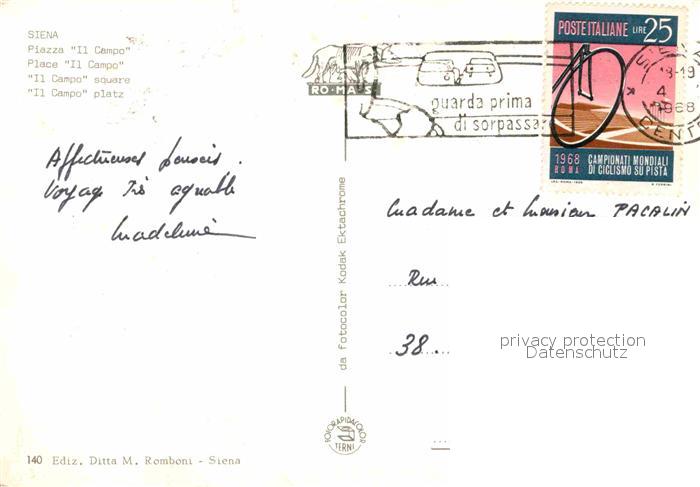 SIENA
Piazza "Il Campo"
Place "Il Campo"
"Il Campo" square
"Il Campo" platz
Affectueuses pensées.
Voyage très agréable
Madeleine
140 Ediz. Ditta M. Romboni - Siena
da fotocolor Kodak Ektachrome
FOTORAPIDACOLOR
TERNI
RO-MA
guarda prima
di sorpassa
POSTE ITALIANE LIRE 25
1968
ROMA
CAMPIONATI MONDIALI
DI CICLISMO SU PISTA
18-19
4
1968
CENT
Madame et Monsieur PACALIN
Rue
38.
privacy protection
Datenschutz